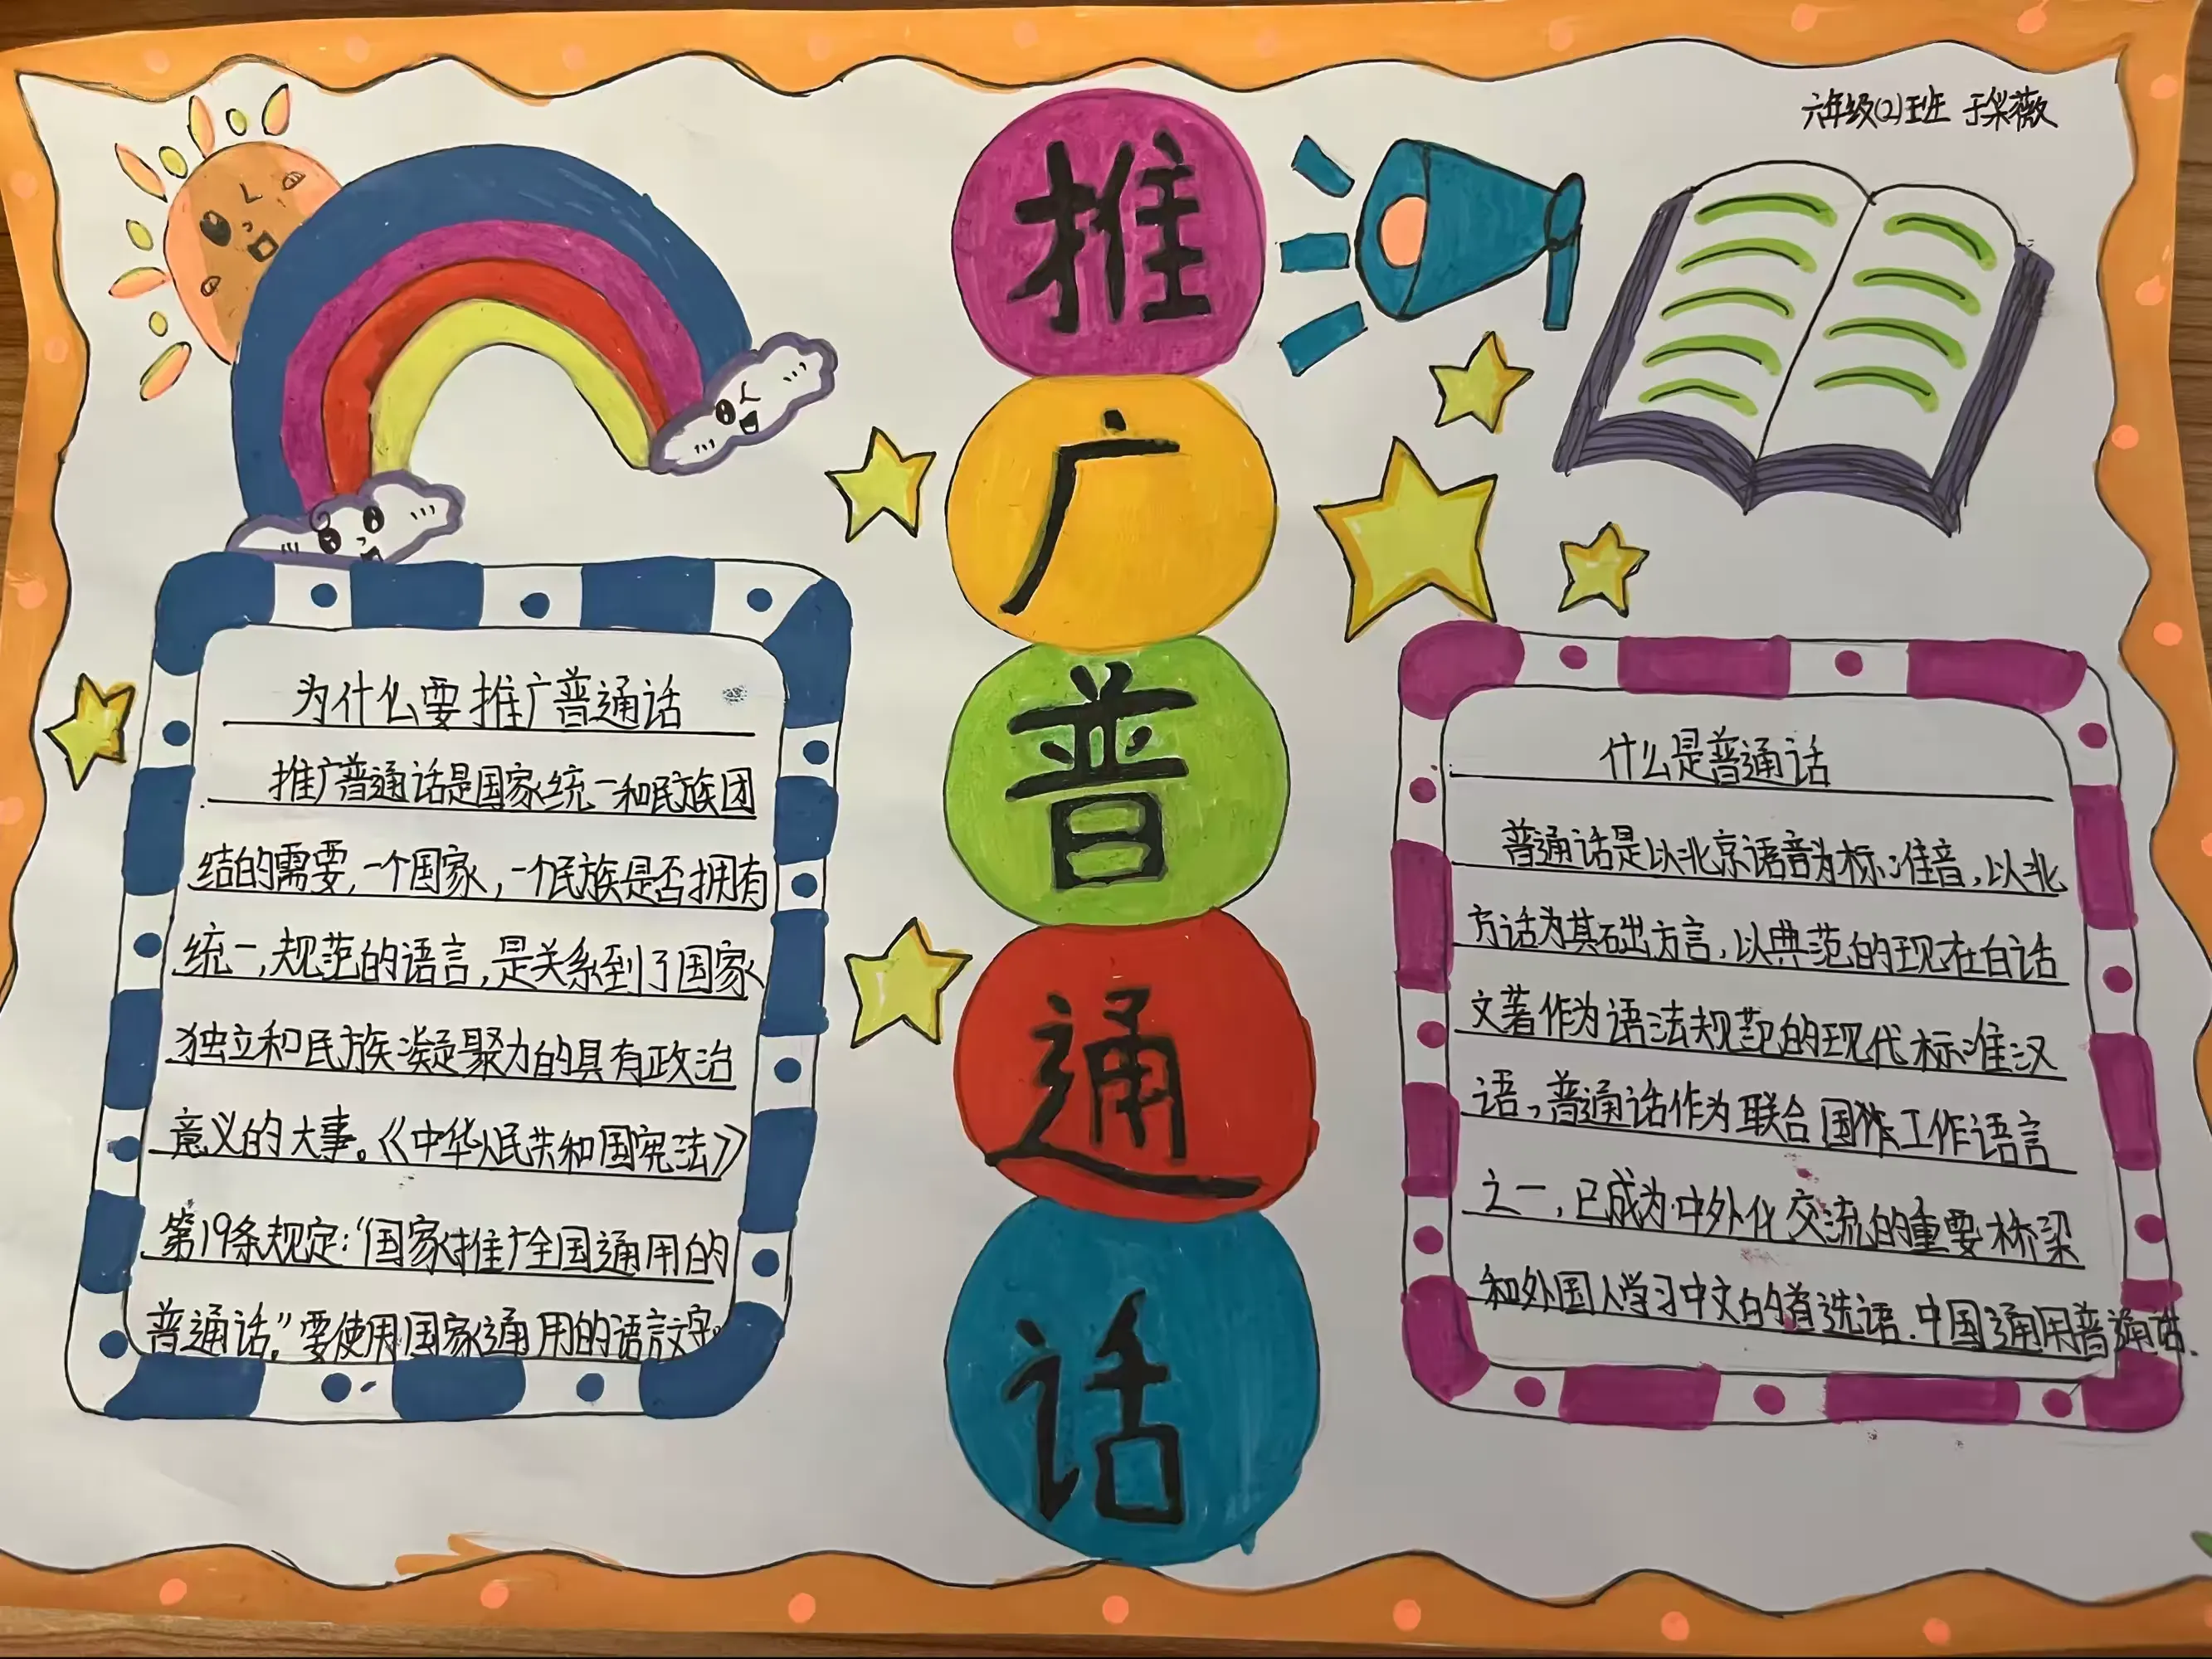 六年级(2)班 于采薇
推
广
普
通
话
为什么要推广普通话
推广普通话是国家统一和民族团
结的需要,一个国家,一个民族是否拥有
统一,规范的语言,是关系到了国家
独立和民族凝聚力的具有政治
意义的大事。《中华人民共和国宪法》
第19条规定:“国家推广全国通用的
普通话。”要使用国家通用的语言文字。
什么是普通话
普通话是以北京语音为标准音,以北
方话为基础方言,以典范的现在白话
文著作为语法规范的现代标准汉
语,普通话作为联合国作工作语言
之一,已成为中外化交流的重要桥梁
和外国人学习中文的首选语.中国通用普通话.